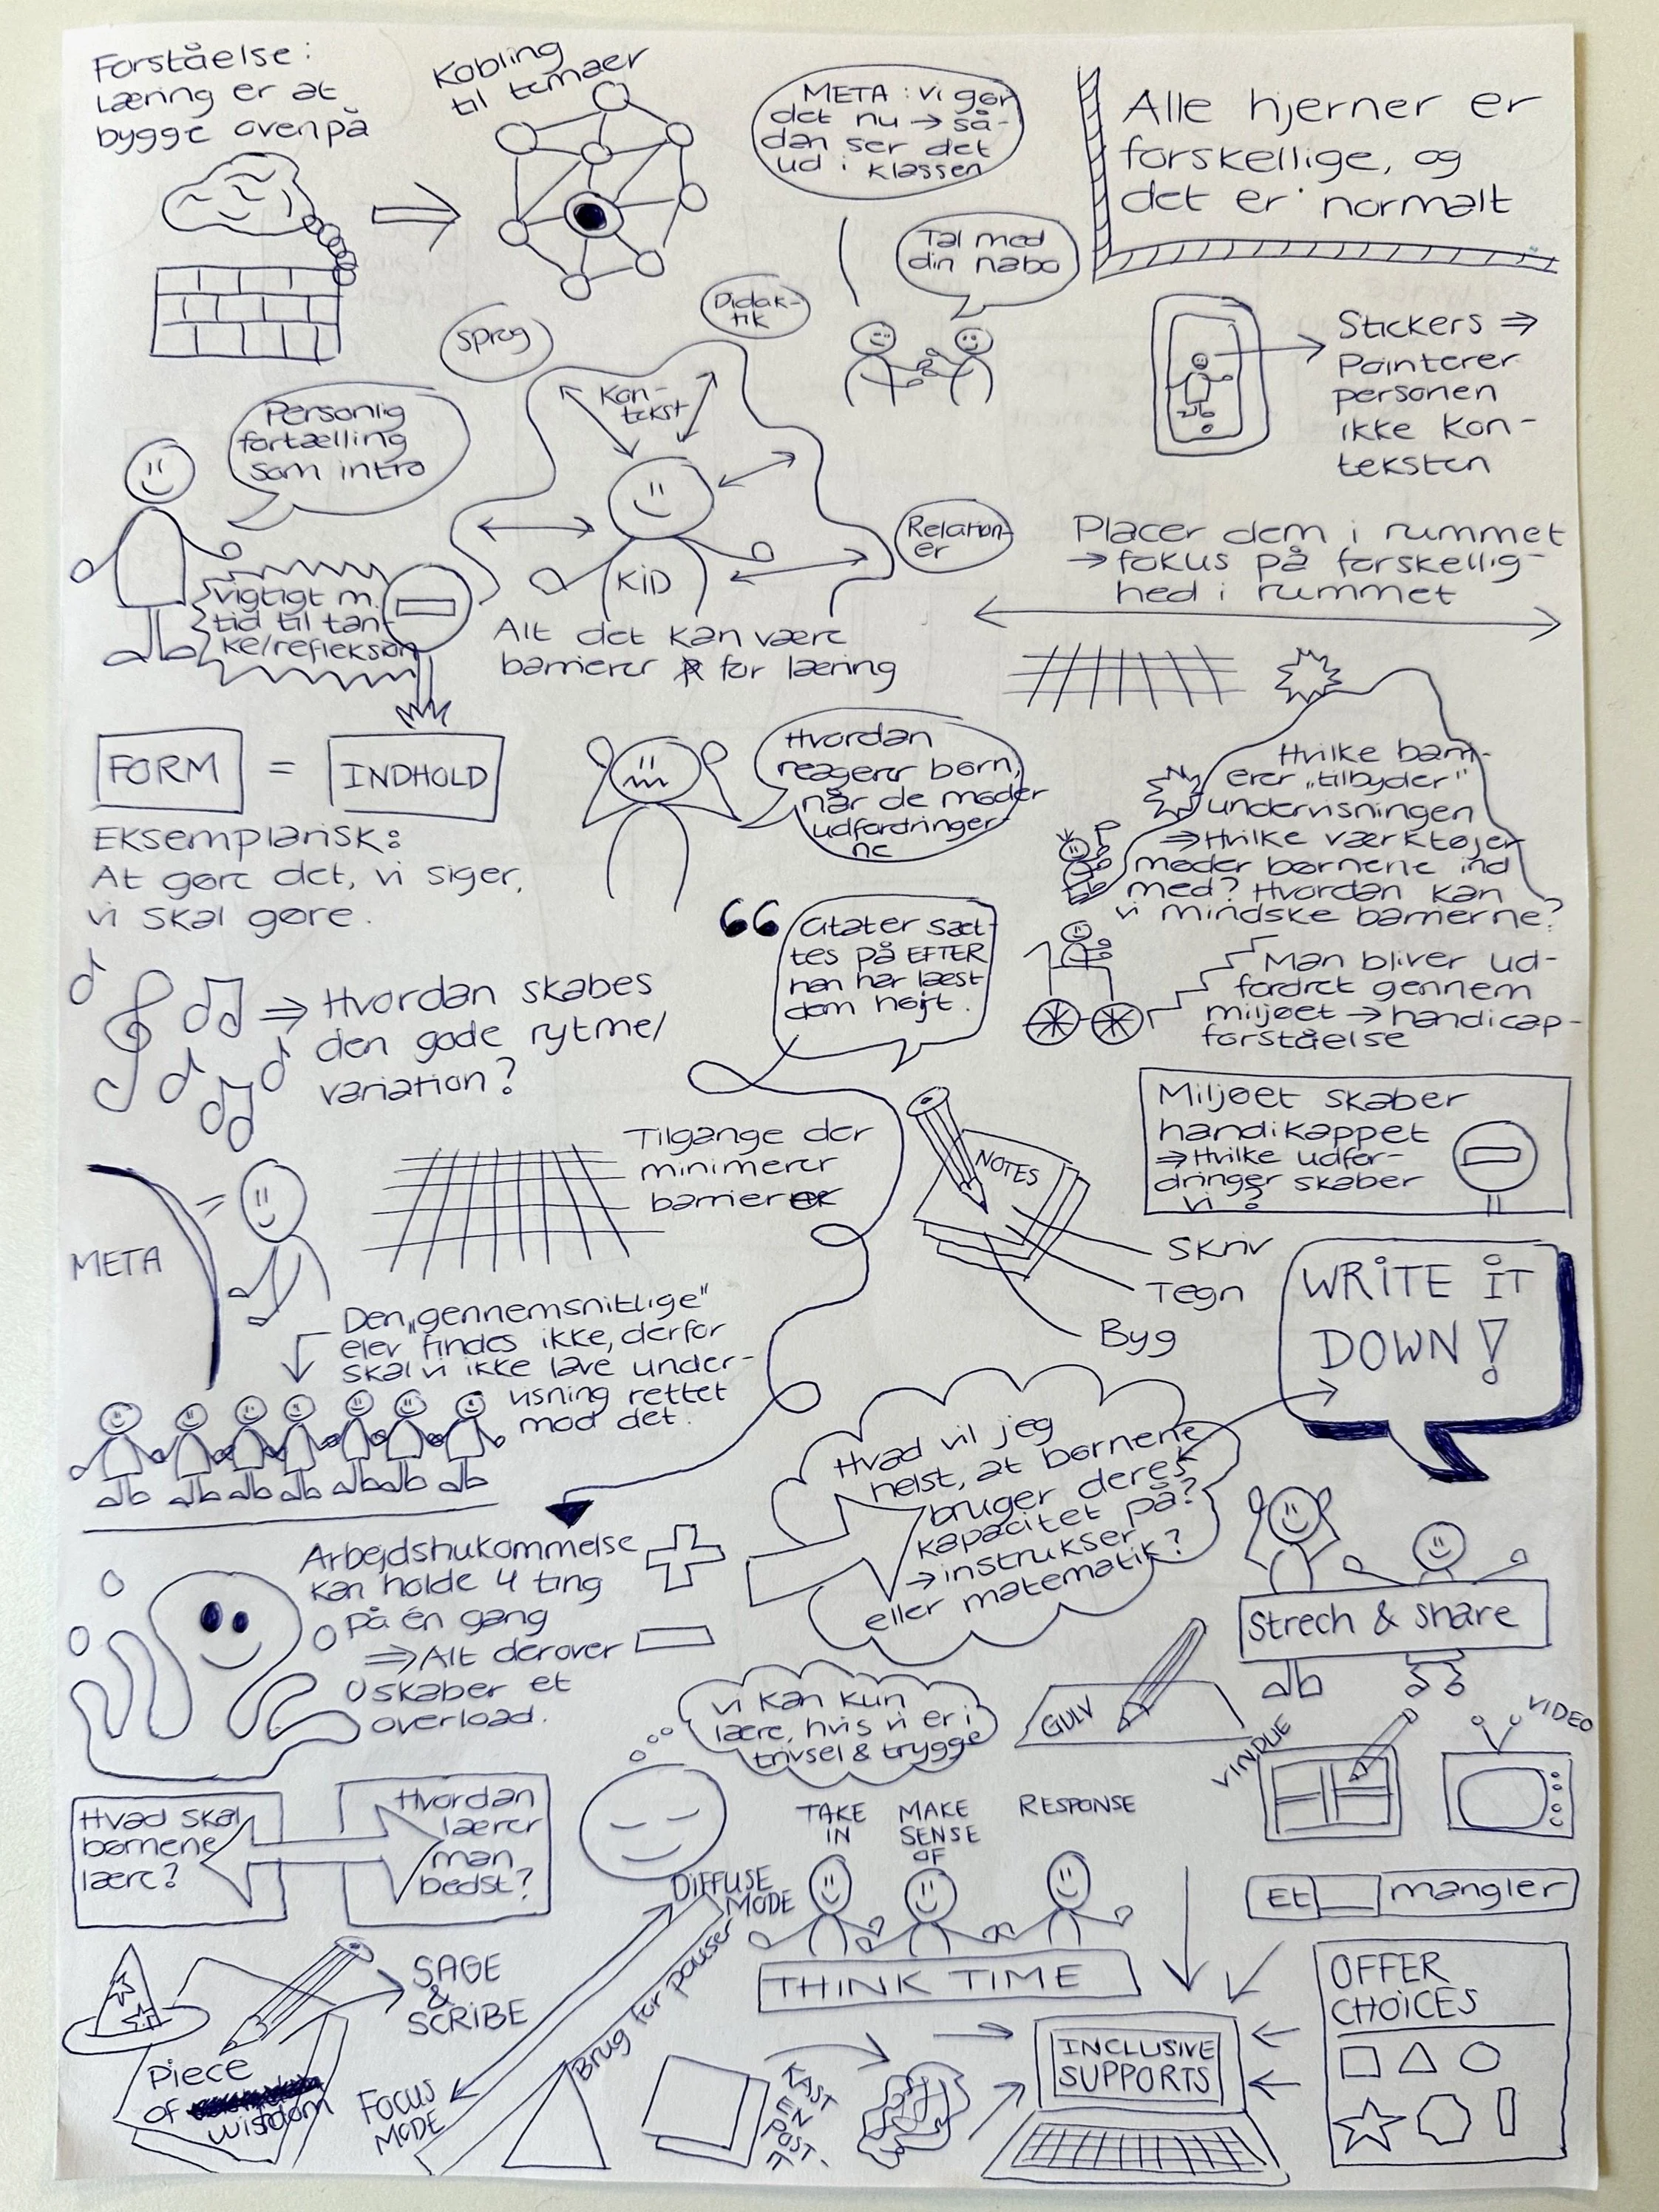 Forståelse:
Læring er at
bygge ovenpå
Kobling
til temaer
META: Vi gør
det nu → så-
dan ser det
ud i klassen
Tal med
din nabo
Alle hjerner er
forskellige, og
det er normalt
Stickers ⇒
Pointerer
personen
ikke kon-
teksten
Sprog
Didak-
tik
Kon-
tekst
Relation-
er
KID
Alt det kan være
barrierer for læring
Personlig
fortælling
som intro
vigtigt m.
tid til tan-
ke/refleksion
Placer dem i rummet
→ fokus på forskellig-
hed i rummet
FORM = INDHOLD
Eksemplarisk:
At gøre det, vi siger,
vi skal gøre.
Hvordan
reagerer børn,
når de møder
udfordringer-
ne
Hvilke barri-
erer „tilbyder"
undervisningen
⇒ Hvilke værktøjer
møder børnene ind
med? Hvordan kan
vi mindske barrierne?
Citater sæt-
tes på EFTER
han har læst
dem højt.
Man bliver ud-
fordret gennem
miljøet → handicap-
forståelse
⇒ Hvordan skabes
den gode rytme/
variation?
Miljøet skaber
handikappet
⇒ Hvilke udfor-
dringer skaber
vi?
Tilgange der
minimerer
barrierer
NOTES
Skriv
Tegn
Byg
META
WRITE IT
DOWN!
Den „gennemsnitlige"
elev findes ikke, derfor
skal vi ikke lave under-
visning rettet
mod det.
Hvad vil jeg
helst, at børnene
bruger deres
kapacitet på?
→ instrukser
eller matematik?
Arbejdshukommelse
kan holde 4 ting
på én gang
⇒ Alt derover
skaber et
overload.
Strech & share
Vi kan kun
lære, hvis vi er i
trivsel & trygge
GULV
VINDUE
VIDEO
Hvad skal
børnene
lære?
Hvordan
lærer
man
bedst?
TAKE
IN
MAKE
SENSE
OF
RESPONSE
THINK TIME
Et ___ mangler
DIFFUSE
MODE
Brug for pauser
FOCUS
MODE
SAGE
&
SCRIBE
Piece
of
wisdom
KAST
EN
POST-
IT
INCLUSIVE
SUPPORTS
OFFER
CHOICES